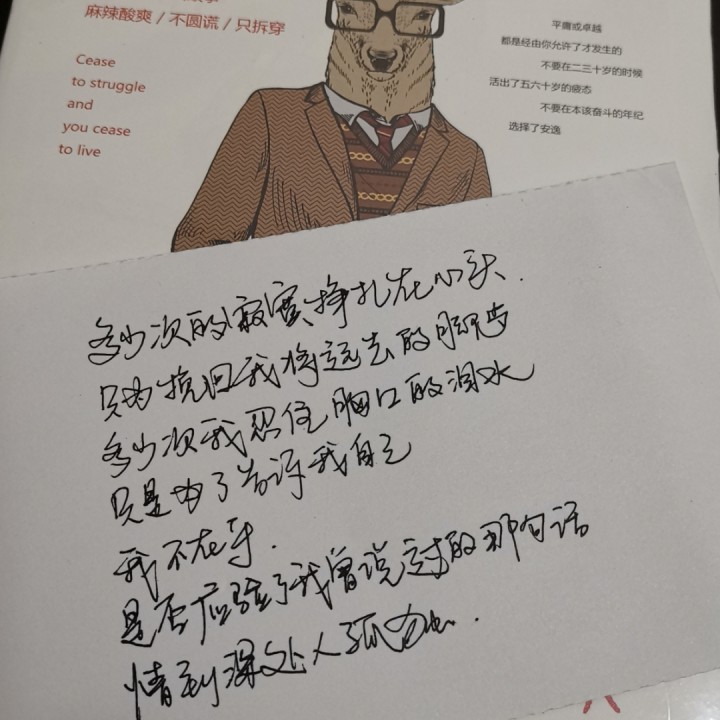 麻辣酸爽 / 不圆谎 / 只拆穿
Cease
to struggle
and
you cease
to live
平庸或卓越
都是经由你允许了才发生的
不要在二三十岁的时候
活出了五六十岁的疲态
不要在本该奋斗的年纪
选择了安逸
多少次的寂寞挣扎在心头.
只为挽回我将远去的脚步
多少次我忍住胸口的泪水
只是为了告诉我自己
我不在乎.
是否应验了我曾说过的那句话
情到深处人孤独.